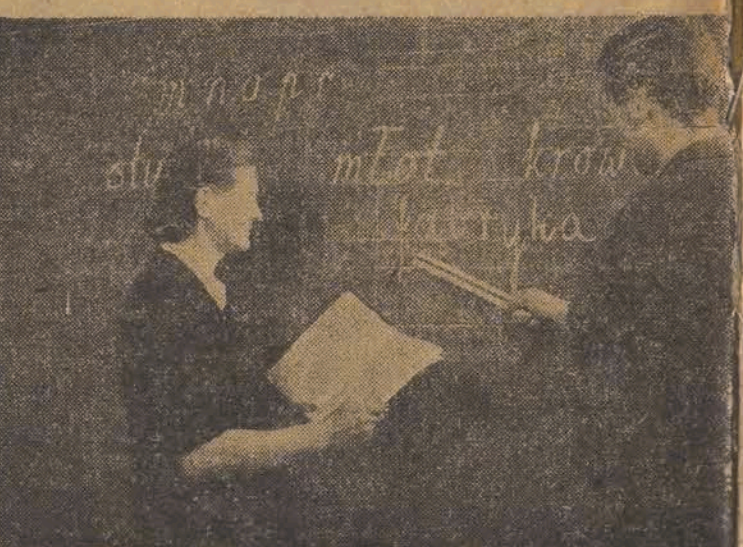 m n o p r
ołó młot krowa
fabryka